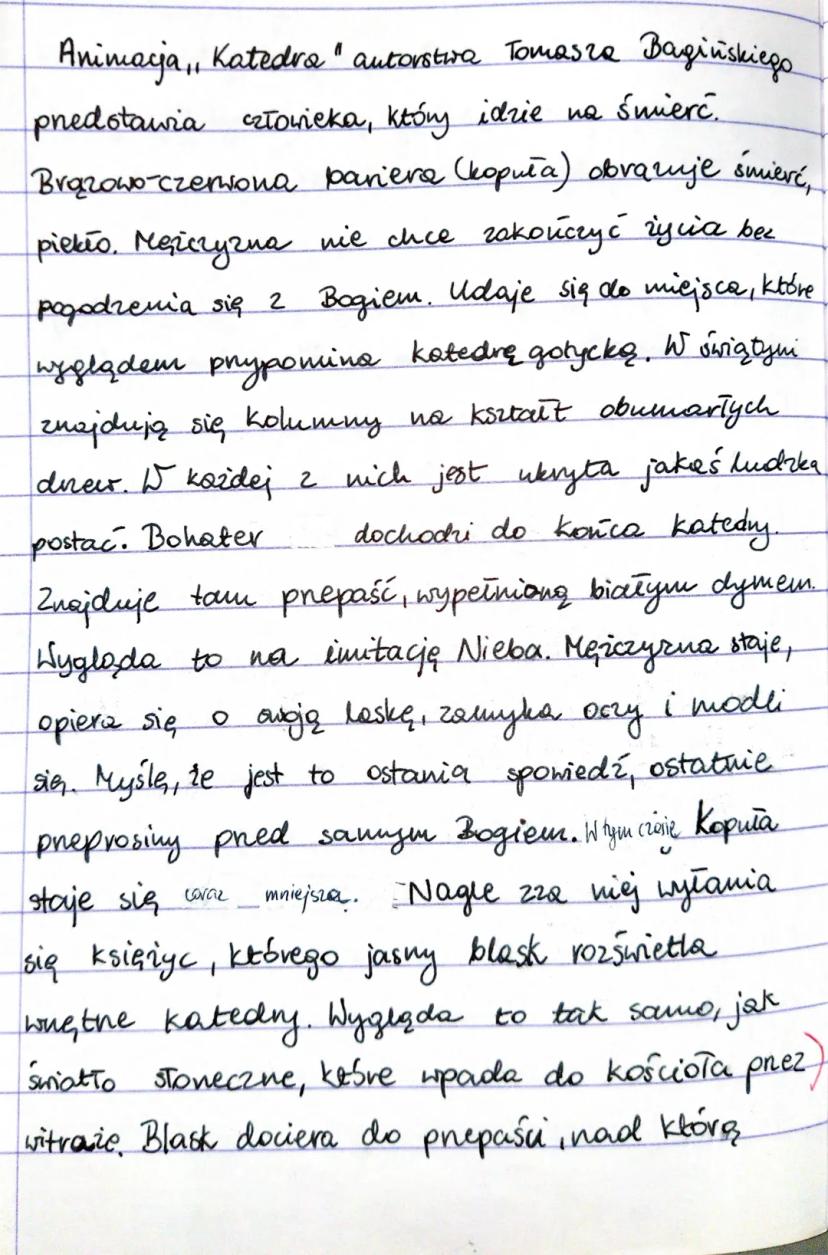 Animacja „Katedra" autorstwa Tomasza Bagińskiego
przedstawia człowieka, który idzie na śmierć.
Brązowo-czerwona bariera (kopuła) obrazuje śmierć,
piekło. Mężczyzna nie chce zakończyć życia bez
pogodzenia się z Bogiem. Udaje się do miejsca, które
wyglądem przypomina katedrę gotycką. W świątyni
znajdują się kolumny na kształt obumarłych
drzew. W każdej z nich jest ukryta jakaś ludzka
postać. Bohater dochodzi do końca katedry.
Znajduje tam przepaść, wypełnioną białym dymem.
Wygląda to na imitację Nieba. Mężczyzna staje,
opiera się o swoją laskę, zamyka oczy i modli
się. Myślę, że jest to ostania spowiedź, ostatnie
przeprosiny przed samym Bogiem. W tym czasie Kopuła
staje się coraz mniejsza. Nagle zza niej wyłania
się księżyc, którego jasny blask rozświetla
wnętrze katedry. Wygląda to tak samo, jak
światło słoneczne, które wpada do kościoła przez
witraże. Blask dociera do przepaści, nad którą